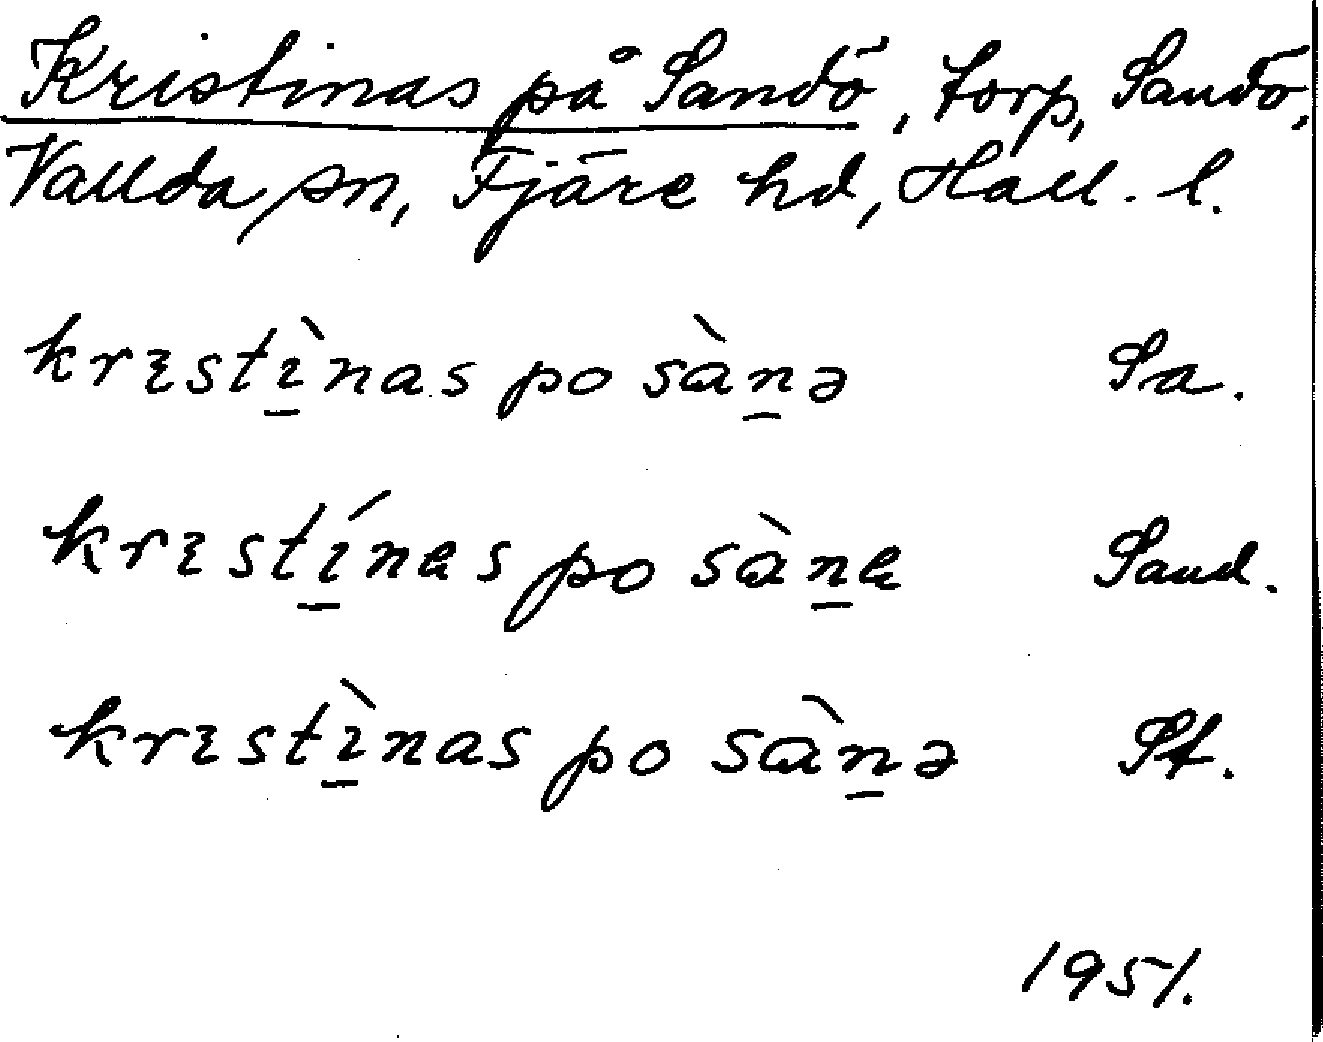 Kristinas på Sandö, torp, Sandö,
Vallda sn, Fjäre hd, Hall. l.
krɪstì̱nas po sàṉə Sa.
krɪstí̱nɐs po sàṉɐ Sand.
krɪstì̱nas po sàṉə St.
1951.